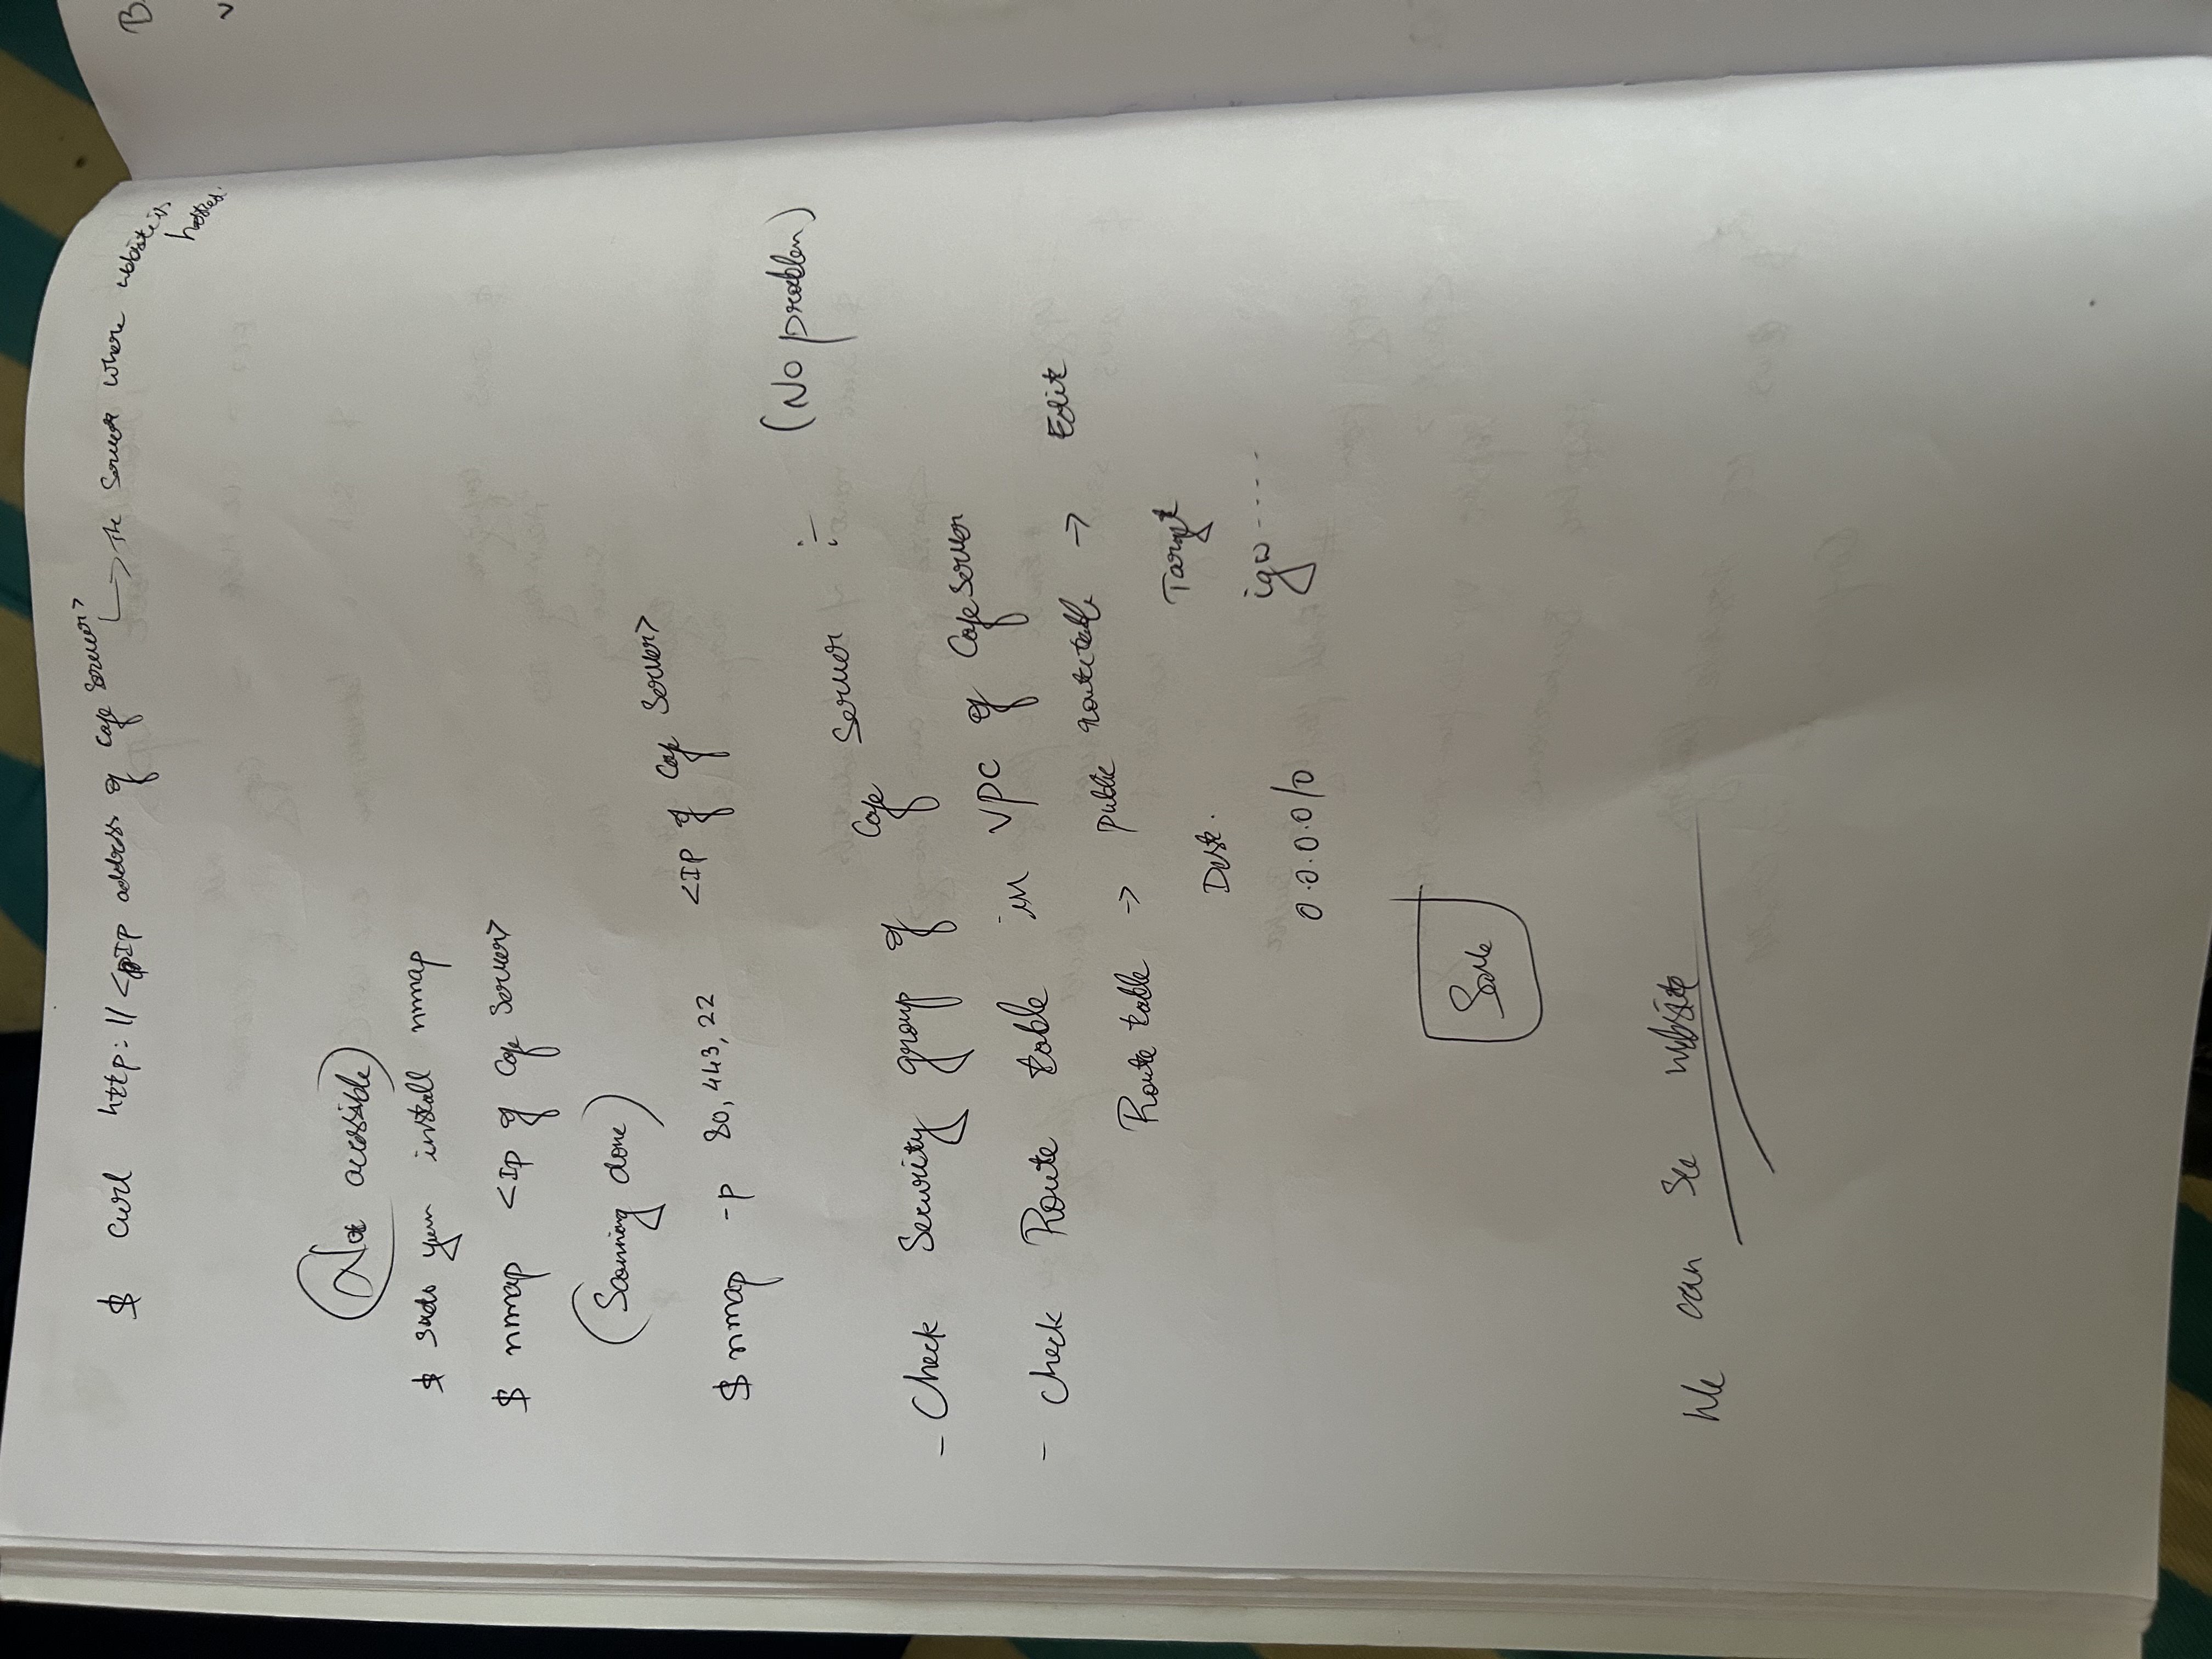 $ curl http:// <IP address of Cafe Server> → The Server where website is
hosted.
(Not acessible)
$ sudo yum install nmap
$ nmap <Ip of Cafe Server>
(Scanning done)
$ nmap -p 80, 443, 22 <IP of Cafe Server>
- Check Security group of Cafe Server :- (No problem)
- Check Route table in VPC of Cafe Server
Route table → public route table → Edit
Dest. Target
0.0.0.0/0 igw ----
Save
We can see website
B